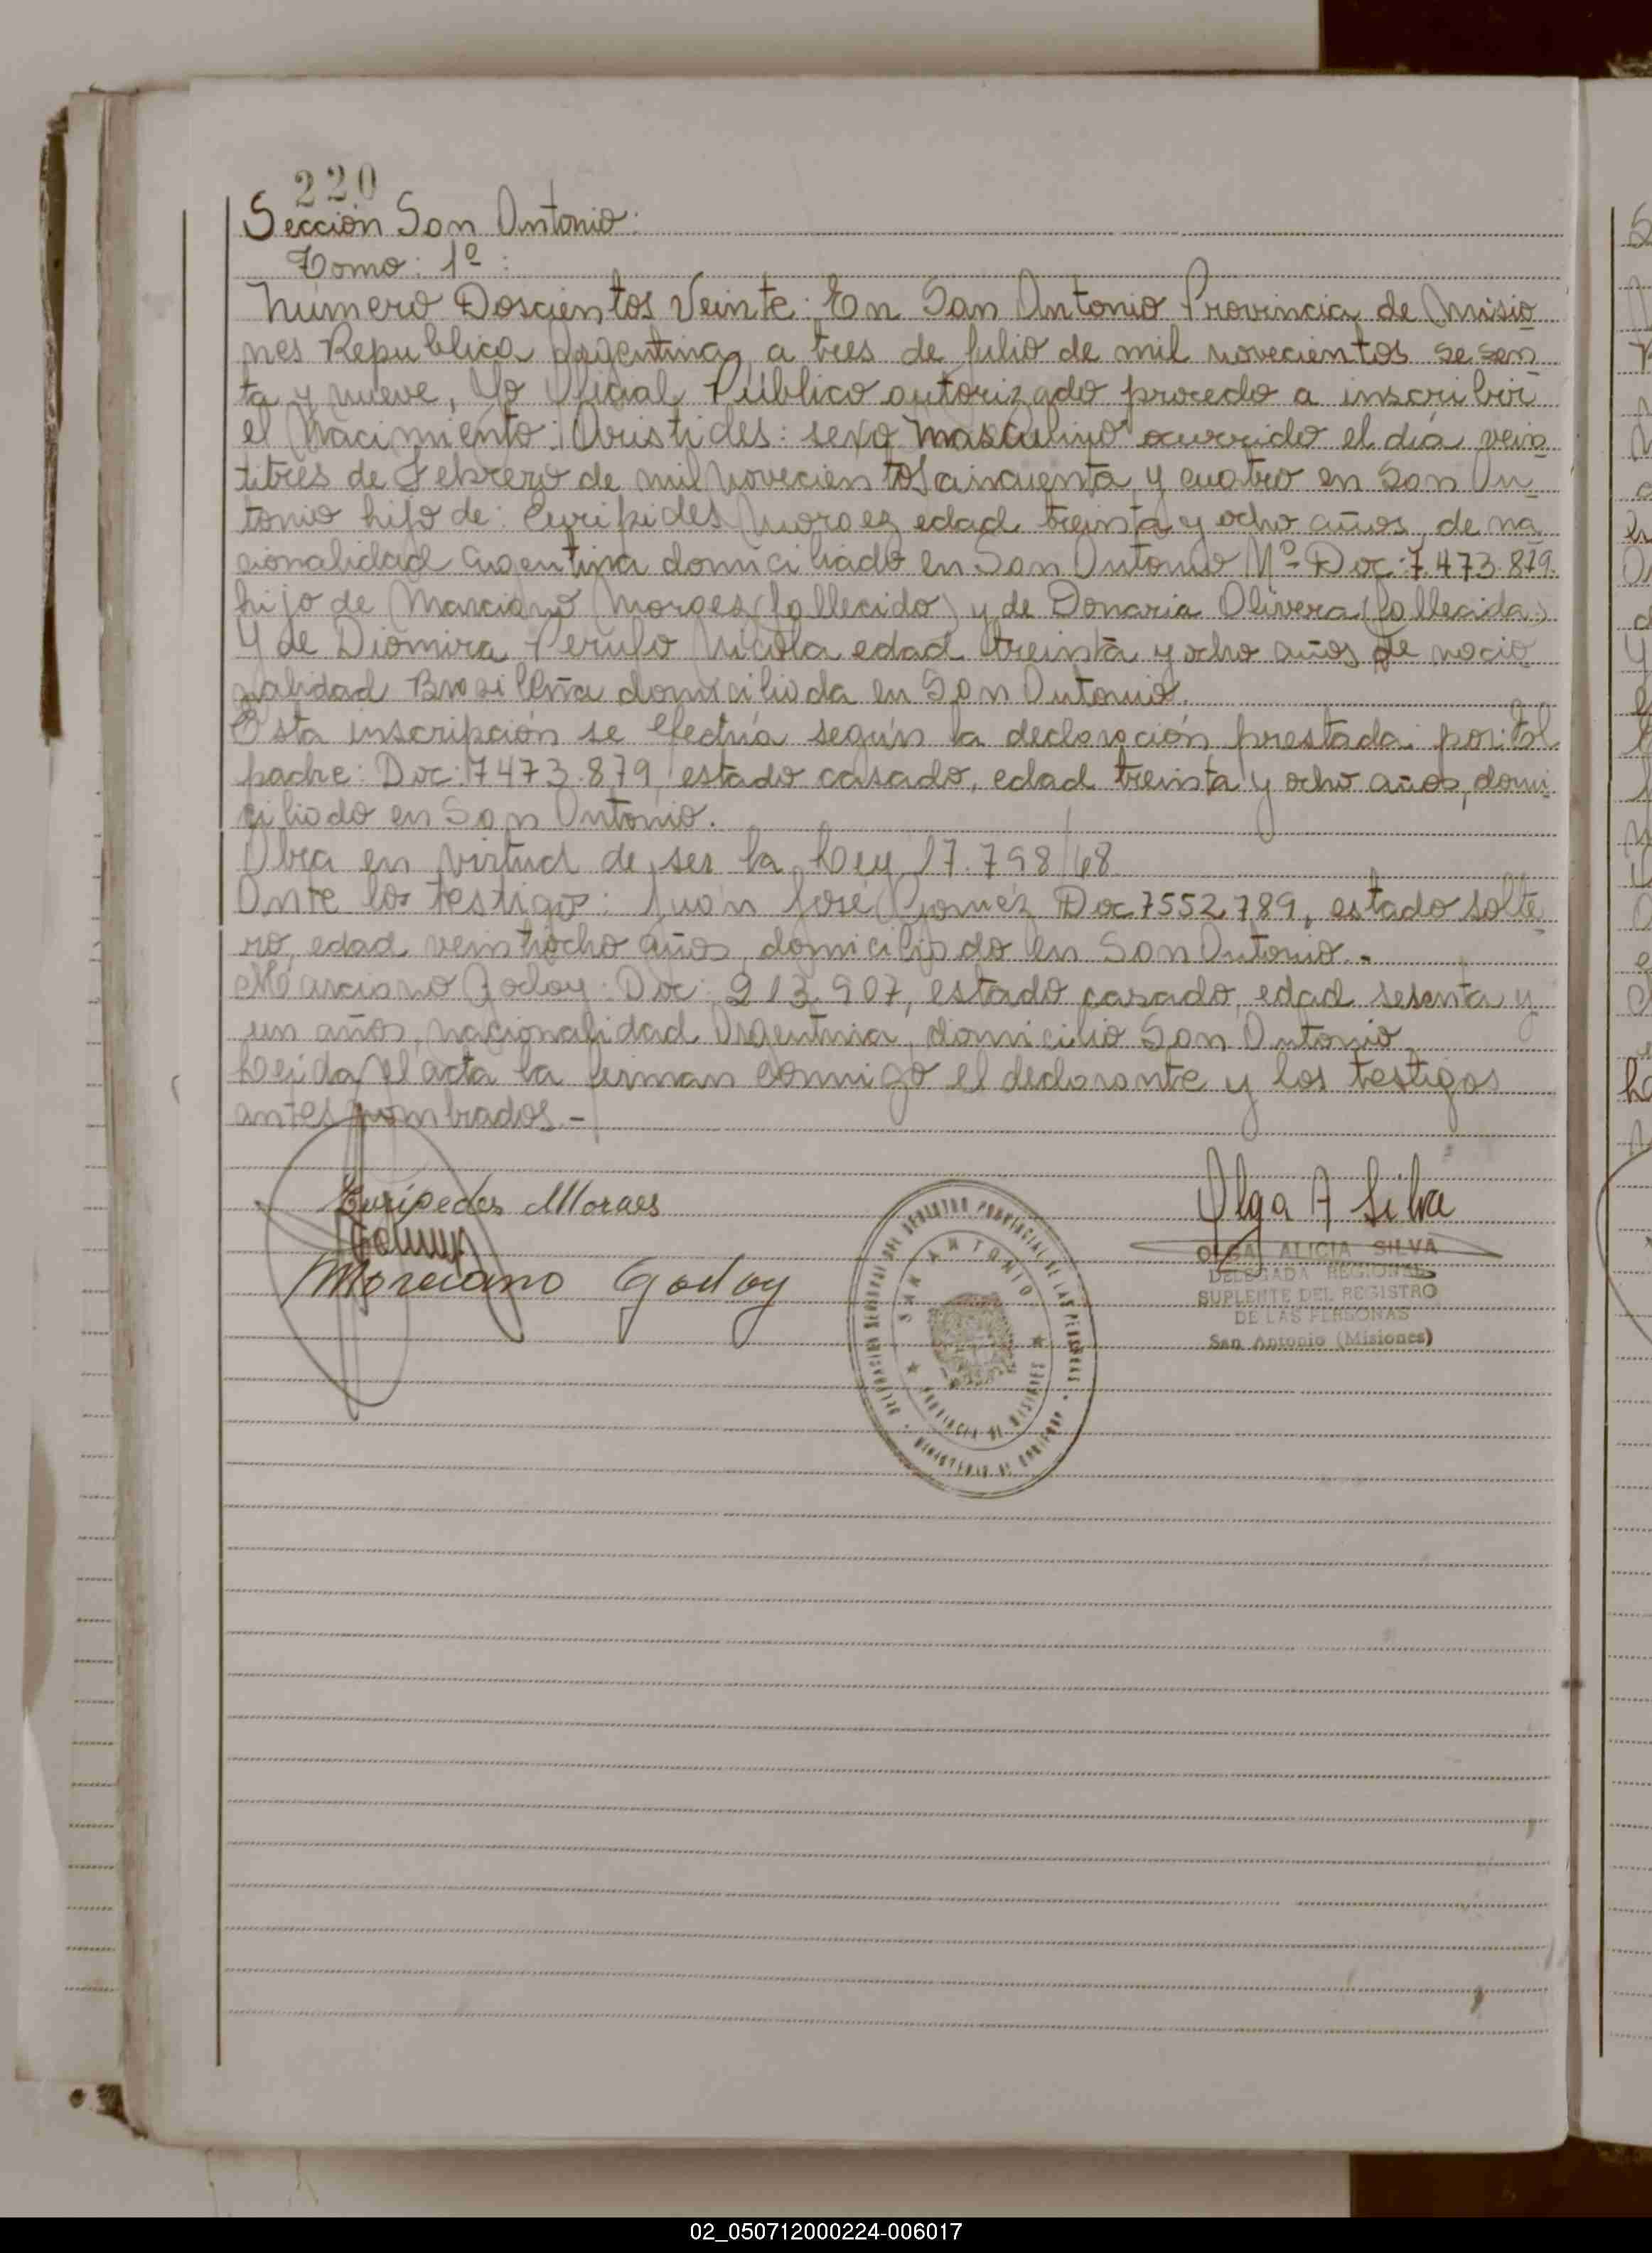 220
Sección San Antonio:
Tomo: 1º:
Número Doscientos Veinte: En San Antonio Provincia de Misio
nes Republica Argentina, a tres de Julio de mil novecientos sesen
ta y nueve, Yo Oficial Público autorizado procedo a inscribir
el Nacimiento: Aristides: sexo masculino ocurrido el día vein
titres de Febrero de mil novecientos cincuenta y cuatro en San An
tonio hijo de: Euripides Moraez edad treinta y ocho años, de na
cionalidad argentina domiciliado en San Antonio Nº Doc: 7.473.879.
hijo de Marciano Moraez (fallecido) y de Donaria Olivera (fallecida)
Y de Diomira edad treinta y ocho años de nacio
nalidad Brasileña domiciliada en San Antonio.
Esta inscripción se efectúa según la declaración prestada por: El
padre: Doc: 7473.879, estado casado, edad treinta y ocho años, domi
ciliado en San Antonio.
Obra en virtud de ser la Ley 17.798/68
Ante los testigos: Juan José Gomez Doc 7552.789, estado solte
ro, edad veintiocho años, domiciliado en San Antonio.-
Marciano Godoy: Doc: 213.907, estado casado, edad sesenta y
un años, nacionalidad Argentina, domicilio San Antonio
Leída el acta la firman conmigo el declarante y los testigos
antes nombrados.-
Euripedes Moraes
Morciano Godoy
Olga A Silva
OLGA ALICIA SILVA
DELEGADA REGIONAL
SUPLENTE DEL REGISTRO
DE LAS PERSONAS
San Antonio (Misiones)
DELEGACION REGIONAL DEL REGISTRO PROVINCIAL DE LAS PERSONAS
SAN ANTONIO
PROVINCIA DE MISIONES
MINISTERIO DE GOBIERNO
02_050712000224-006017